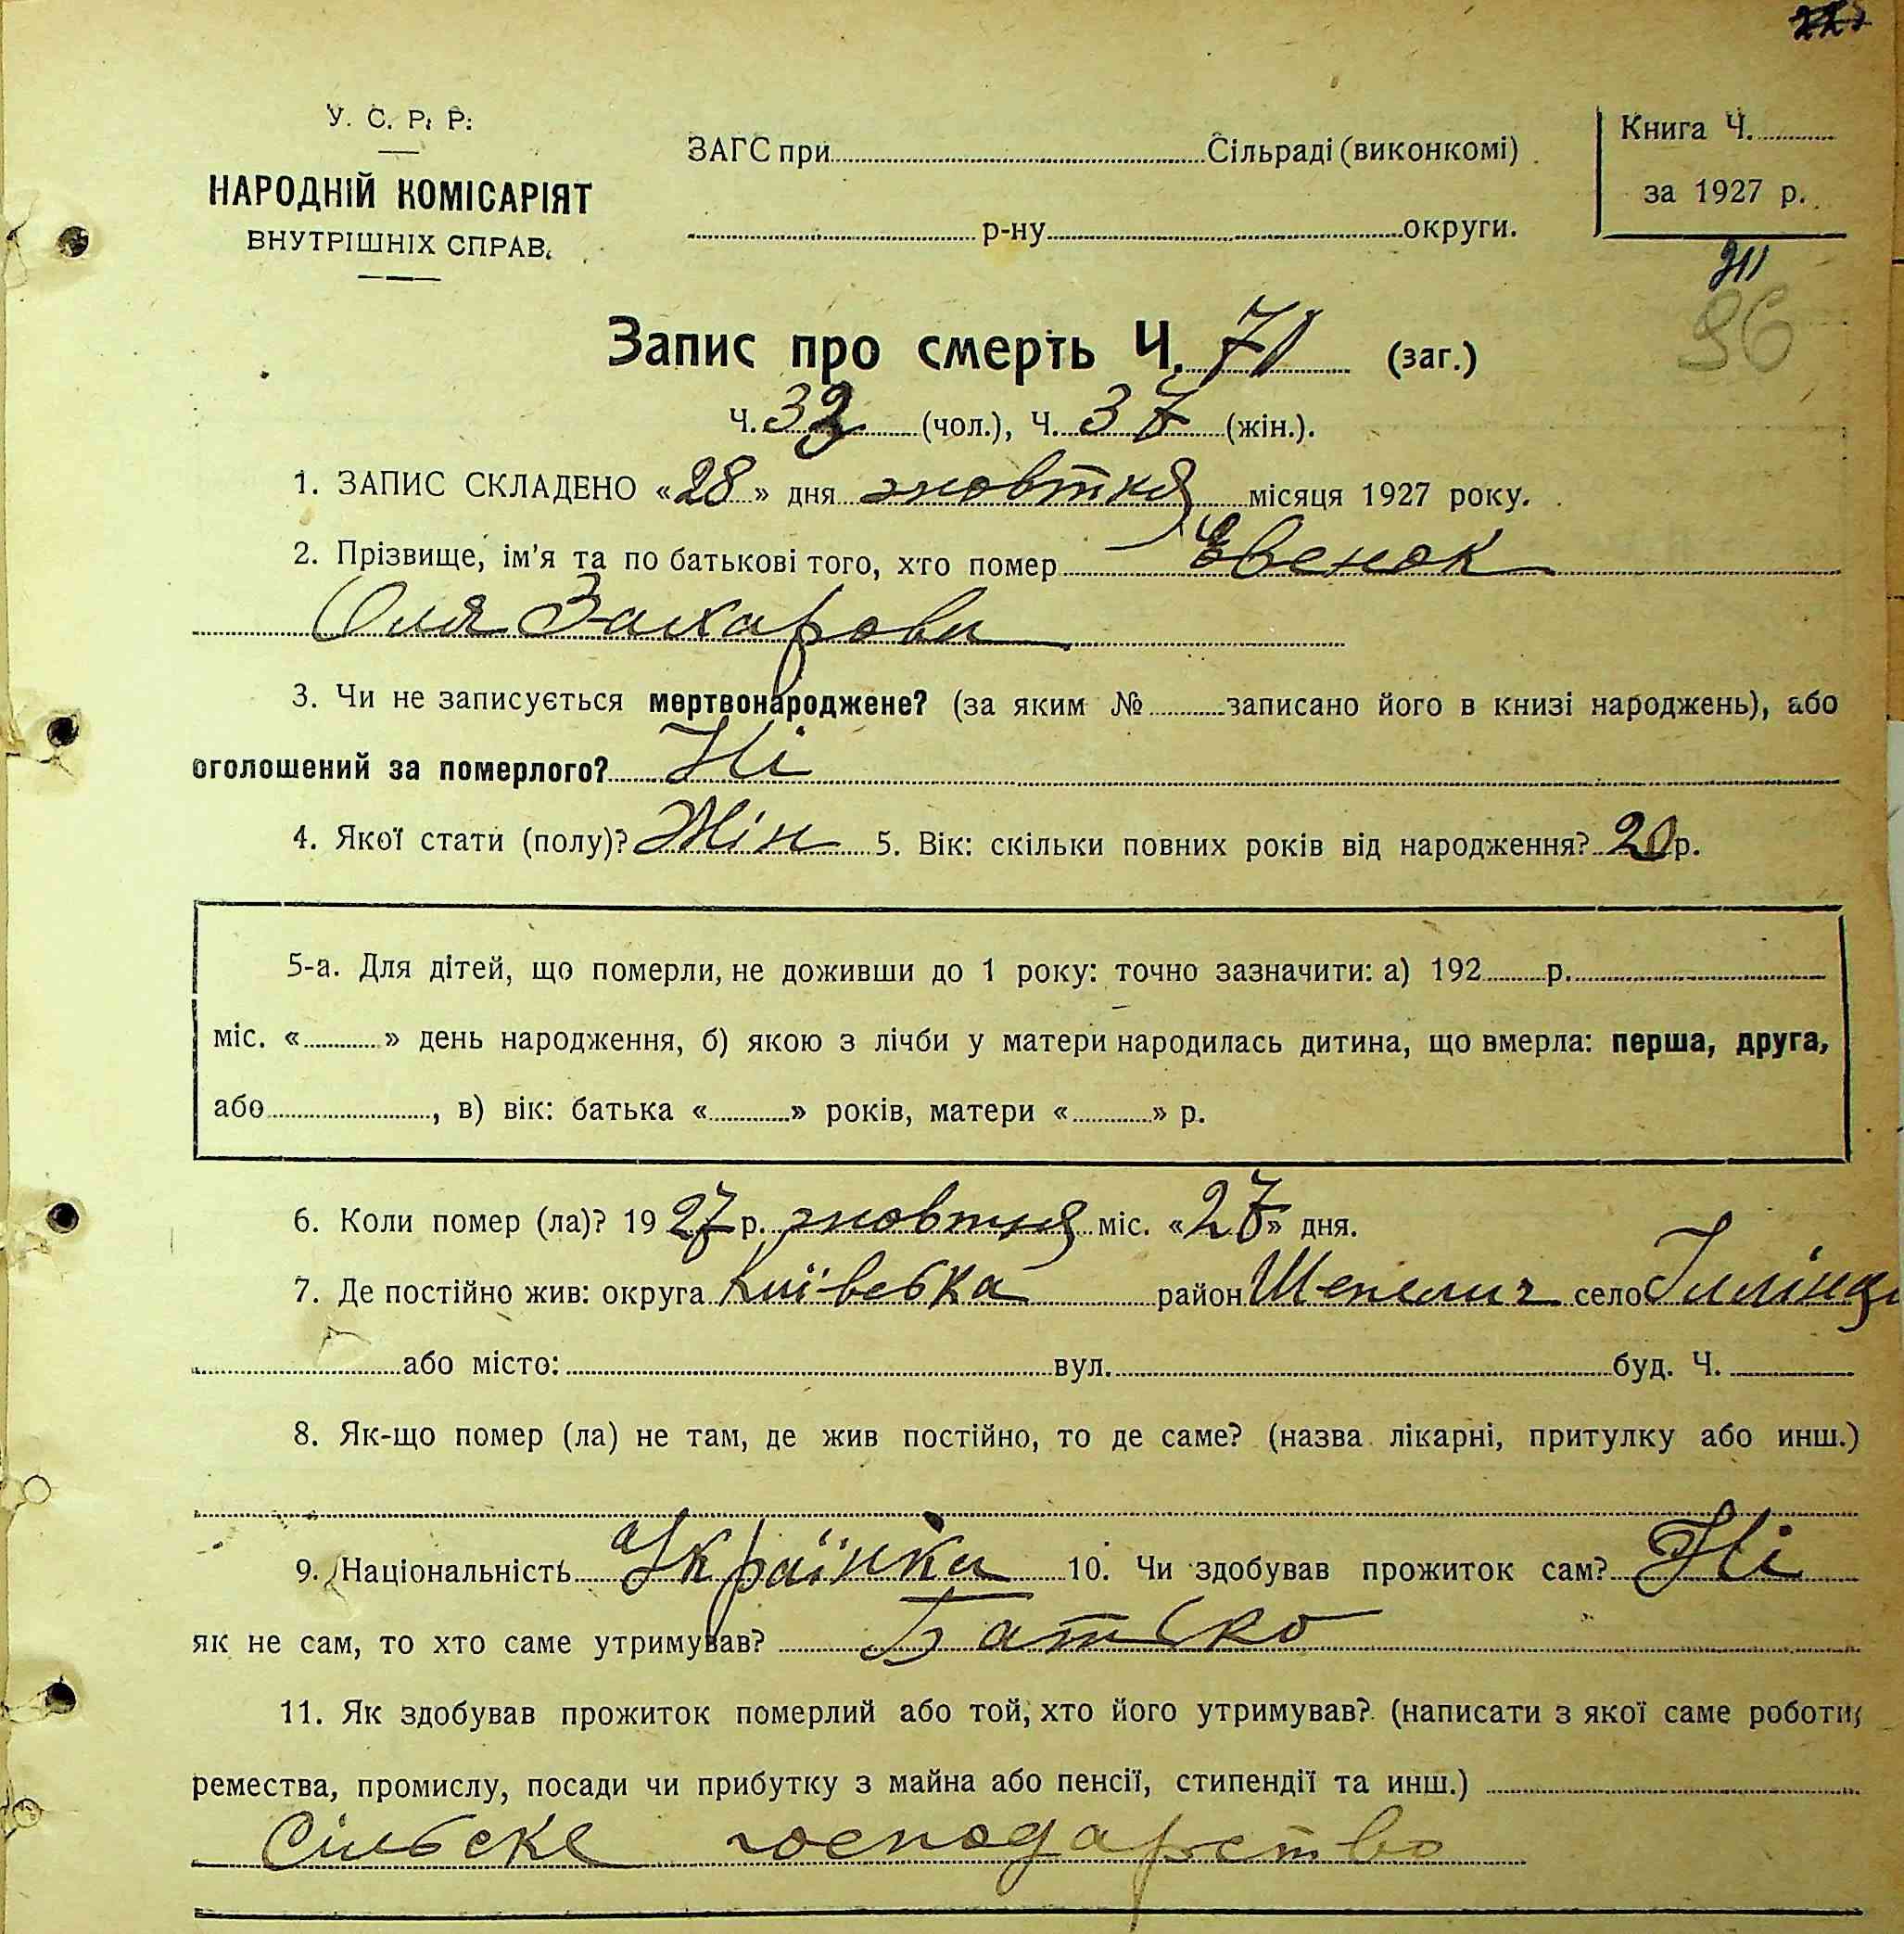 У. С. Р. Р.
НАРОДНІЙ КОМІСАРІЯТ
ВНУТРІШНІХ СПРАВ.
ЗАГС при Сільраді (виконкомі)
р-ну округи.
Книга Ч.
за 1927 р.
96
Запис про смерть Ч. 71 (заг.)
Ч. 33 (чол.), Ч. 37 (жін.).
1. ЗАПИС СКЛАДЕНО «28» дня жовтня місяця 1927 року.
2. Прізвище, ім'я та по батькові того, хто помер Євенок
Оля Захарова
3. Чи не записується мертвонароджене? (за яким № записано його в книзі народжень), або
оголошений за померлого? Ні
4. Якої стати (полу)? Жін 5. Вік: скільки повних років від народження? 20 р.
5-а. Для дітей, що померли, не доживши до 1 року: точно зазначити: а) 192 р.
міс. « » день народження, б) якою з лічби у матери народилась дитина, що вмерла: перша, друга,
або , в) вік: батька « » років, матери « » р.
6. Коли помер (ла)? 1927 р. жовтня міс. «27» дня.
7. Де постійно жив: округа Київська район Шепелич село Іллінці
або місто: вул. буд. Ч.
8. Як-що помер (ла) не там, де жив постійно, то де саме? (назва лікарні, притулку або инш.)
9. Національність Українка 10. Чи здобував прожиток сам? Ні
як не сам, то хто саме утримував? Батько
11. Як здобував прожиток померлий або той, хто його утримував? (написати з якої саме роботи,
ремества, промислу, посади чи прибутку з майна або пенсії, стипендії та инш.)
Сільське господарство